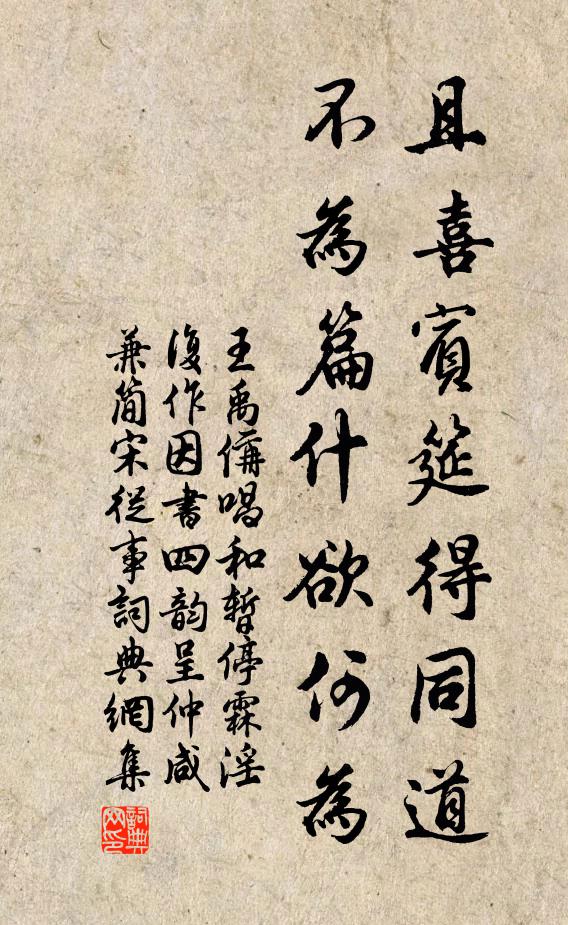 且喜賓筵得同道
不為篇什欲何為
王禹偁唱和暫停霖淫
復作因書四韵呈仲咸
兼簡宋從事詞典網集
詞典网印